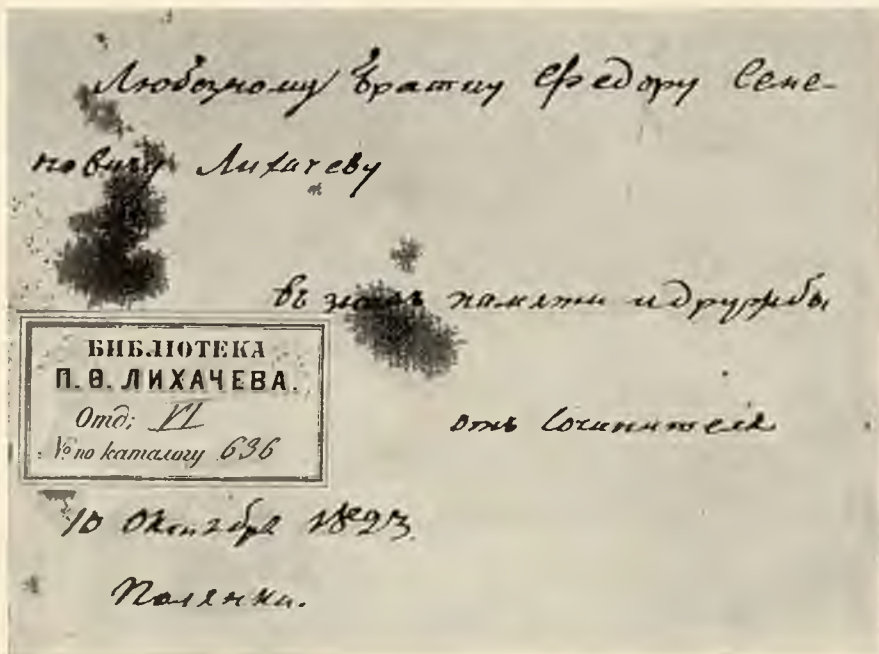 Любезному братцу Федору Семе-
новичу Лихачеву
въ знакъ памяти и дружбы
БИБЛІОТЕКА
П. Ѳ. ЛИХАЧЕВА.
Отд: VI
№ по каталогу 636
отъ Сочинителя
10 Октября 1823
Полянки.